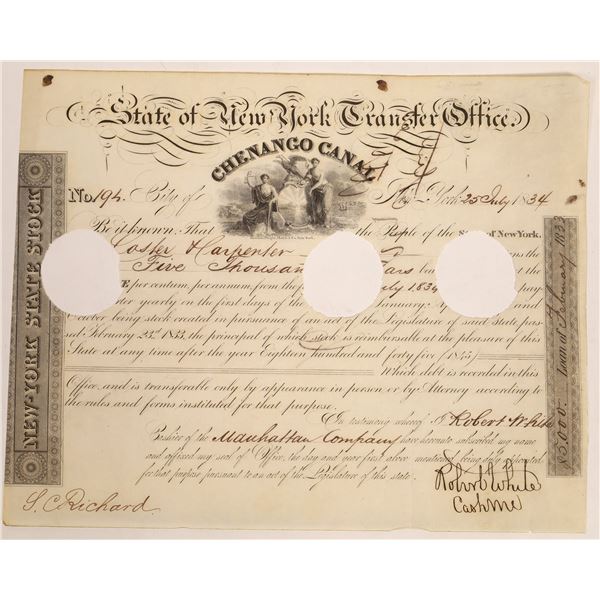 State of New York Transfer Office.
CHENANGO CANAL
No. 194. City of New-York 25 July 1834
Be it known: That the People of the State of New York.
Coster & Carpenter
Five Thousand
per centum, per annum, from the July 1834 pay-
quarter yearly on the first days of the January:
October being stock created in pursuance of an act of the Legislature of said state, pas-
sed February 23rd 1833, the principal of which stock is reimbursable at the pleasure of this
State at any time after the year Eighteen hundred and forty five (1845)
Which debt is recorded in this
Office, and is transferable only by appearance in person or by Attorney according to
the rules and forms instituted for that purpose.
In testimony whereof I Robert White
Cashier of the Manhattan Company have hereunto subscribed my name
and affixed my seal of Office, the day and year first above mentioned being duly appointed
for that purpose pursuant to an act of the Legislature of this state.
Robert White
S. C. Richard
NEW-YORK STATE STOCK
$5,000: Law of February 1833